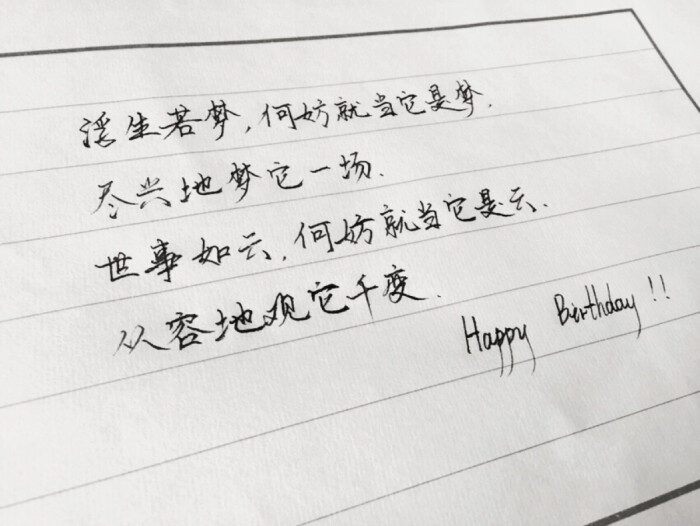 浮生若梦,何妨就当它是梦.
尽兴地梦它一场.
世事如云,何妨就当它是云.
从容地观它千变.
Happy Birthday!!